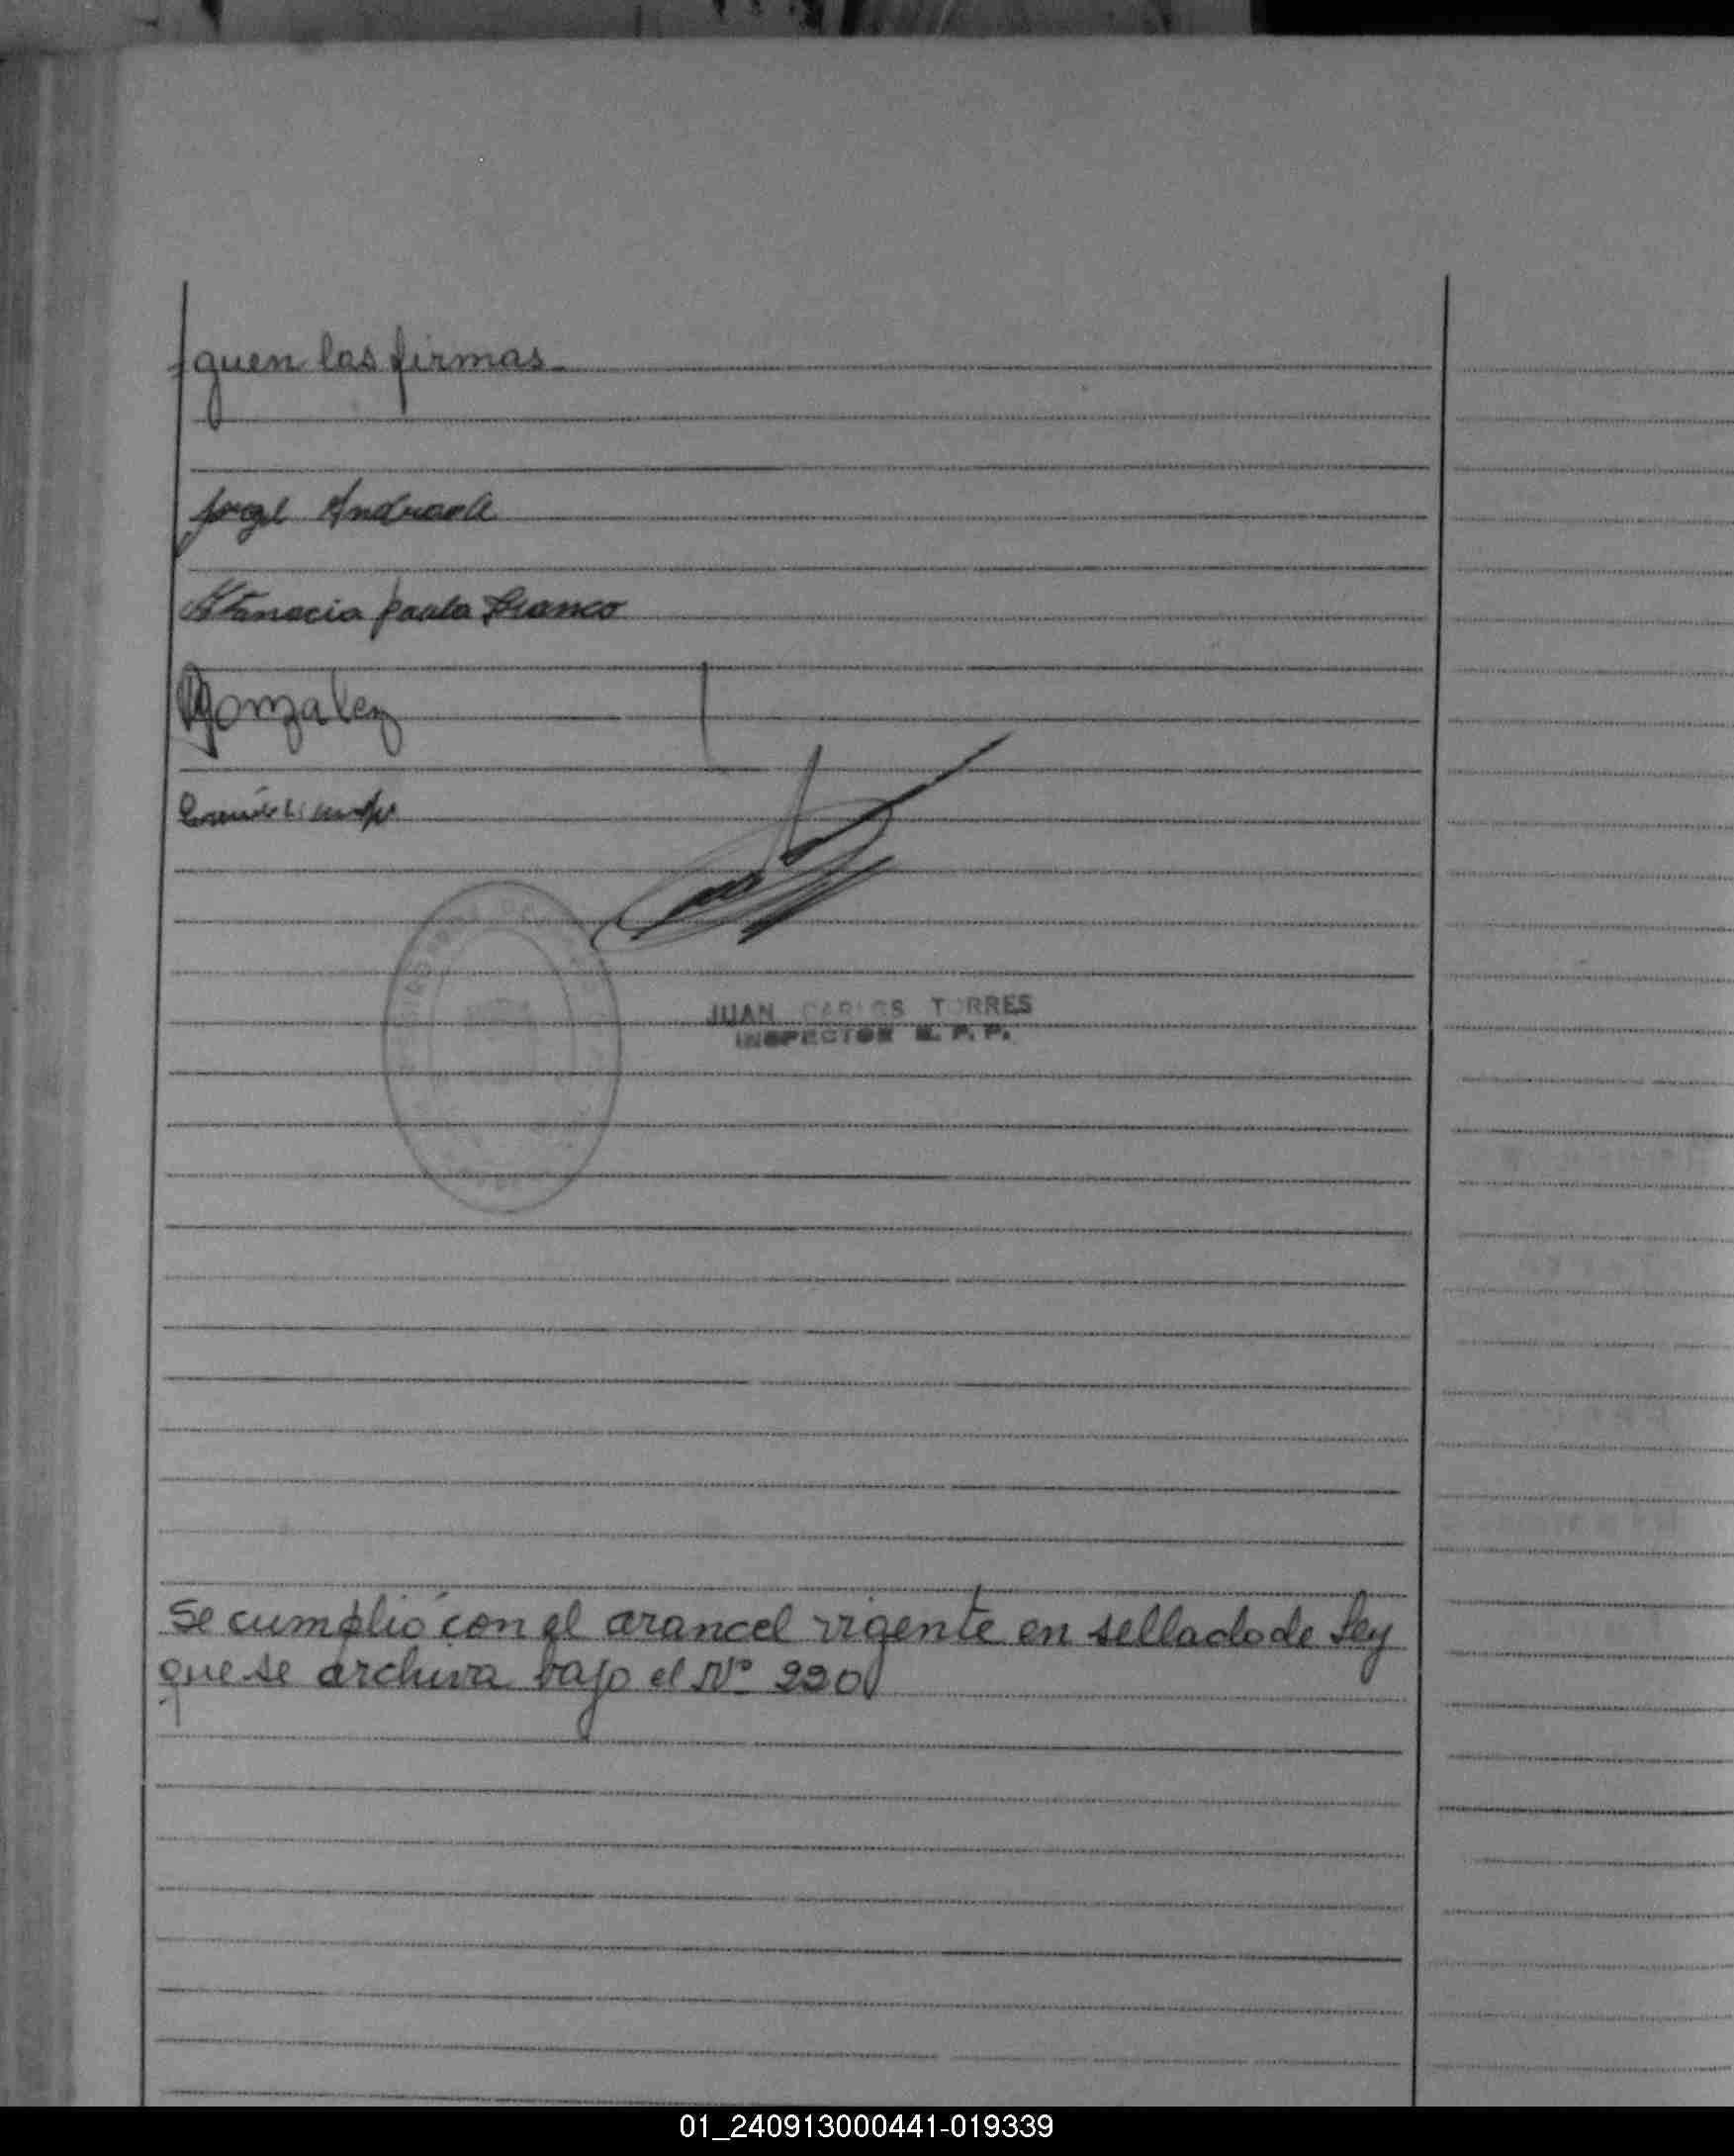 guen las firmas
Jorge Andrade
Atanacia Paula Franco
Gonzalez
JUAN CARLOS TORRES
INSPECTOR
se cumplió con el arancel vigente en sellado de Ley
que se archiva bajo el Nº 220
01_240913000441-019339